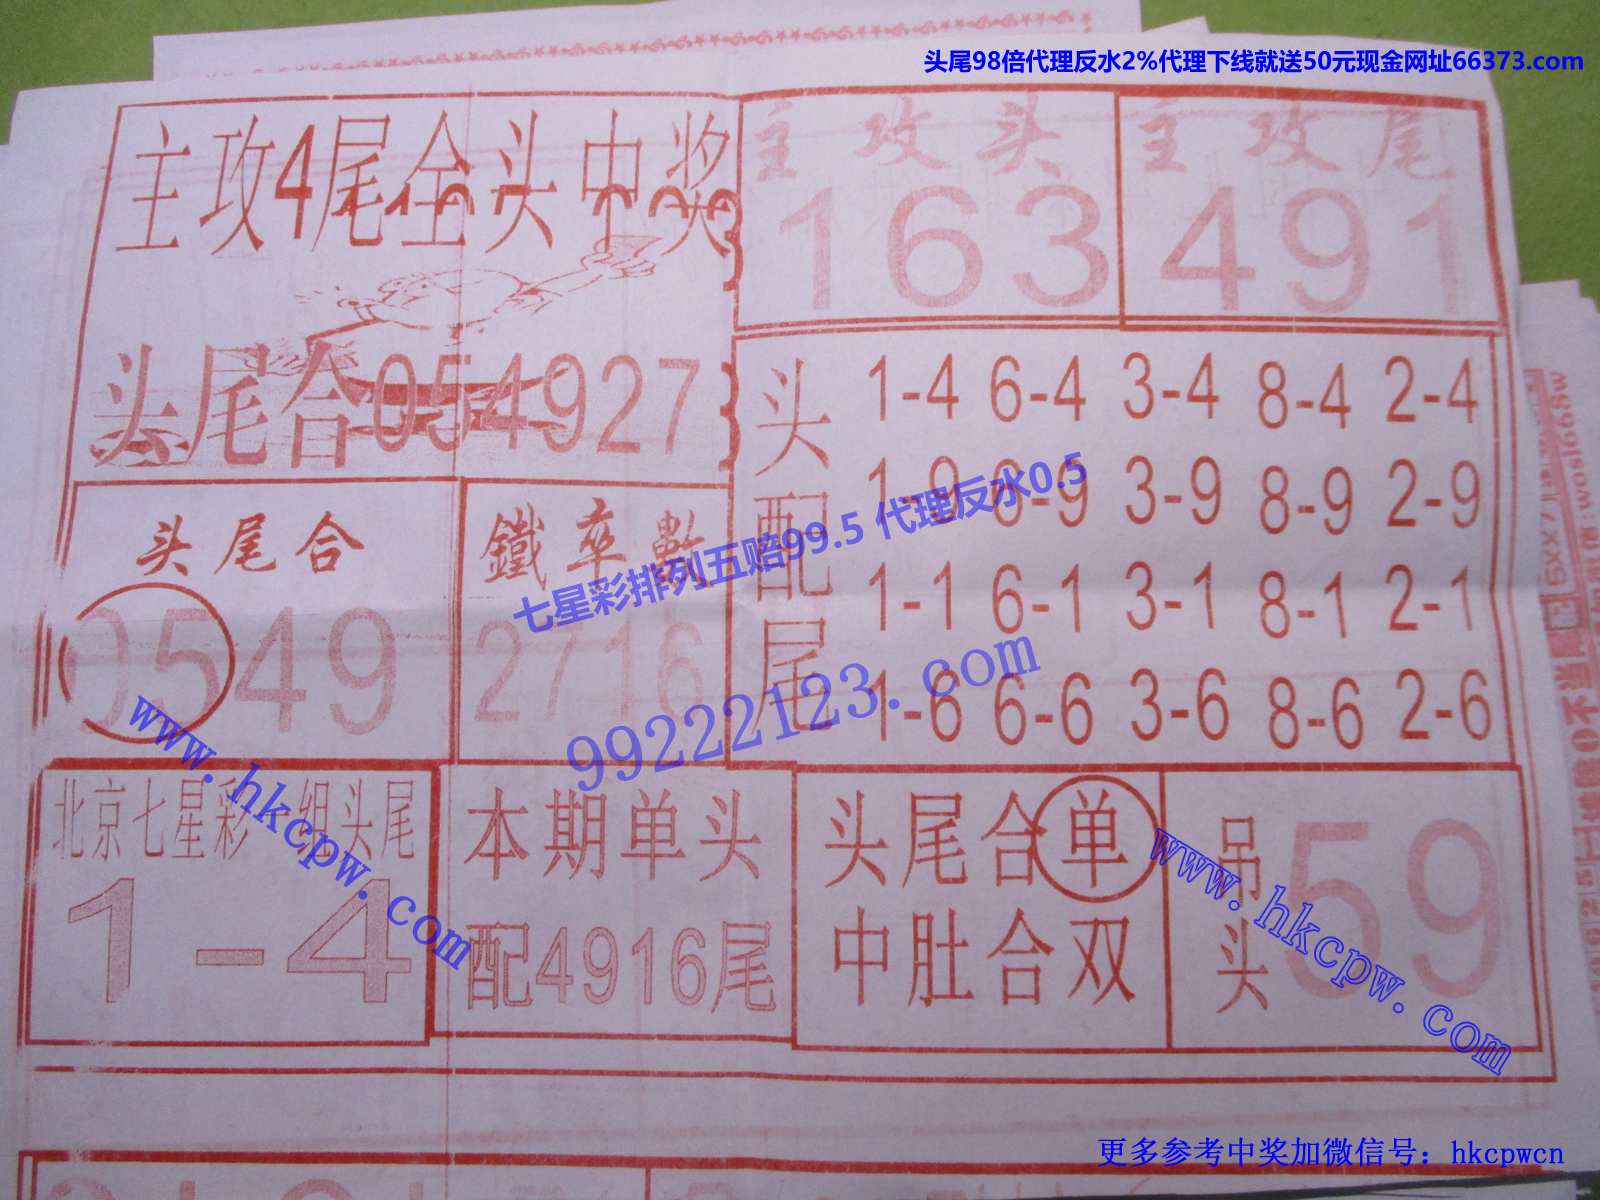 头尾98倍代理反水2%代理下线就送50元现金网址66373.com
主攻4尾全头中奖
头尾合054927
主攻头
163
主攻尾
491
头配尾
1-4 6-4 3-4 8-4 2-4
1-9 6-9 3-9 8-9 2-9
1-1 6-1 3-1 8-1 2-1
1-6 6-6 3-6 8-6 2-6
头尾合
0549
鐵卒數
2716
七星彩排列五赔99.5 代理反水0.5
99222123.com
www.hkcpw.com
北京七星彩一组头尾
1-4
本期单头
配4916尾
头尾合单
中肚合双
吊头
59
www.hkcpw.com
更多参考中奖加微信号：hkcpwcn